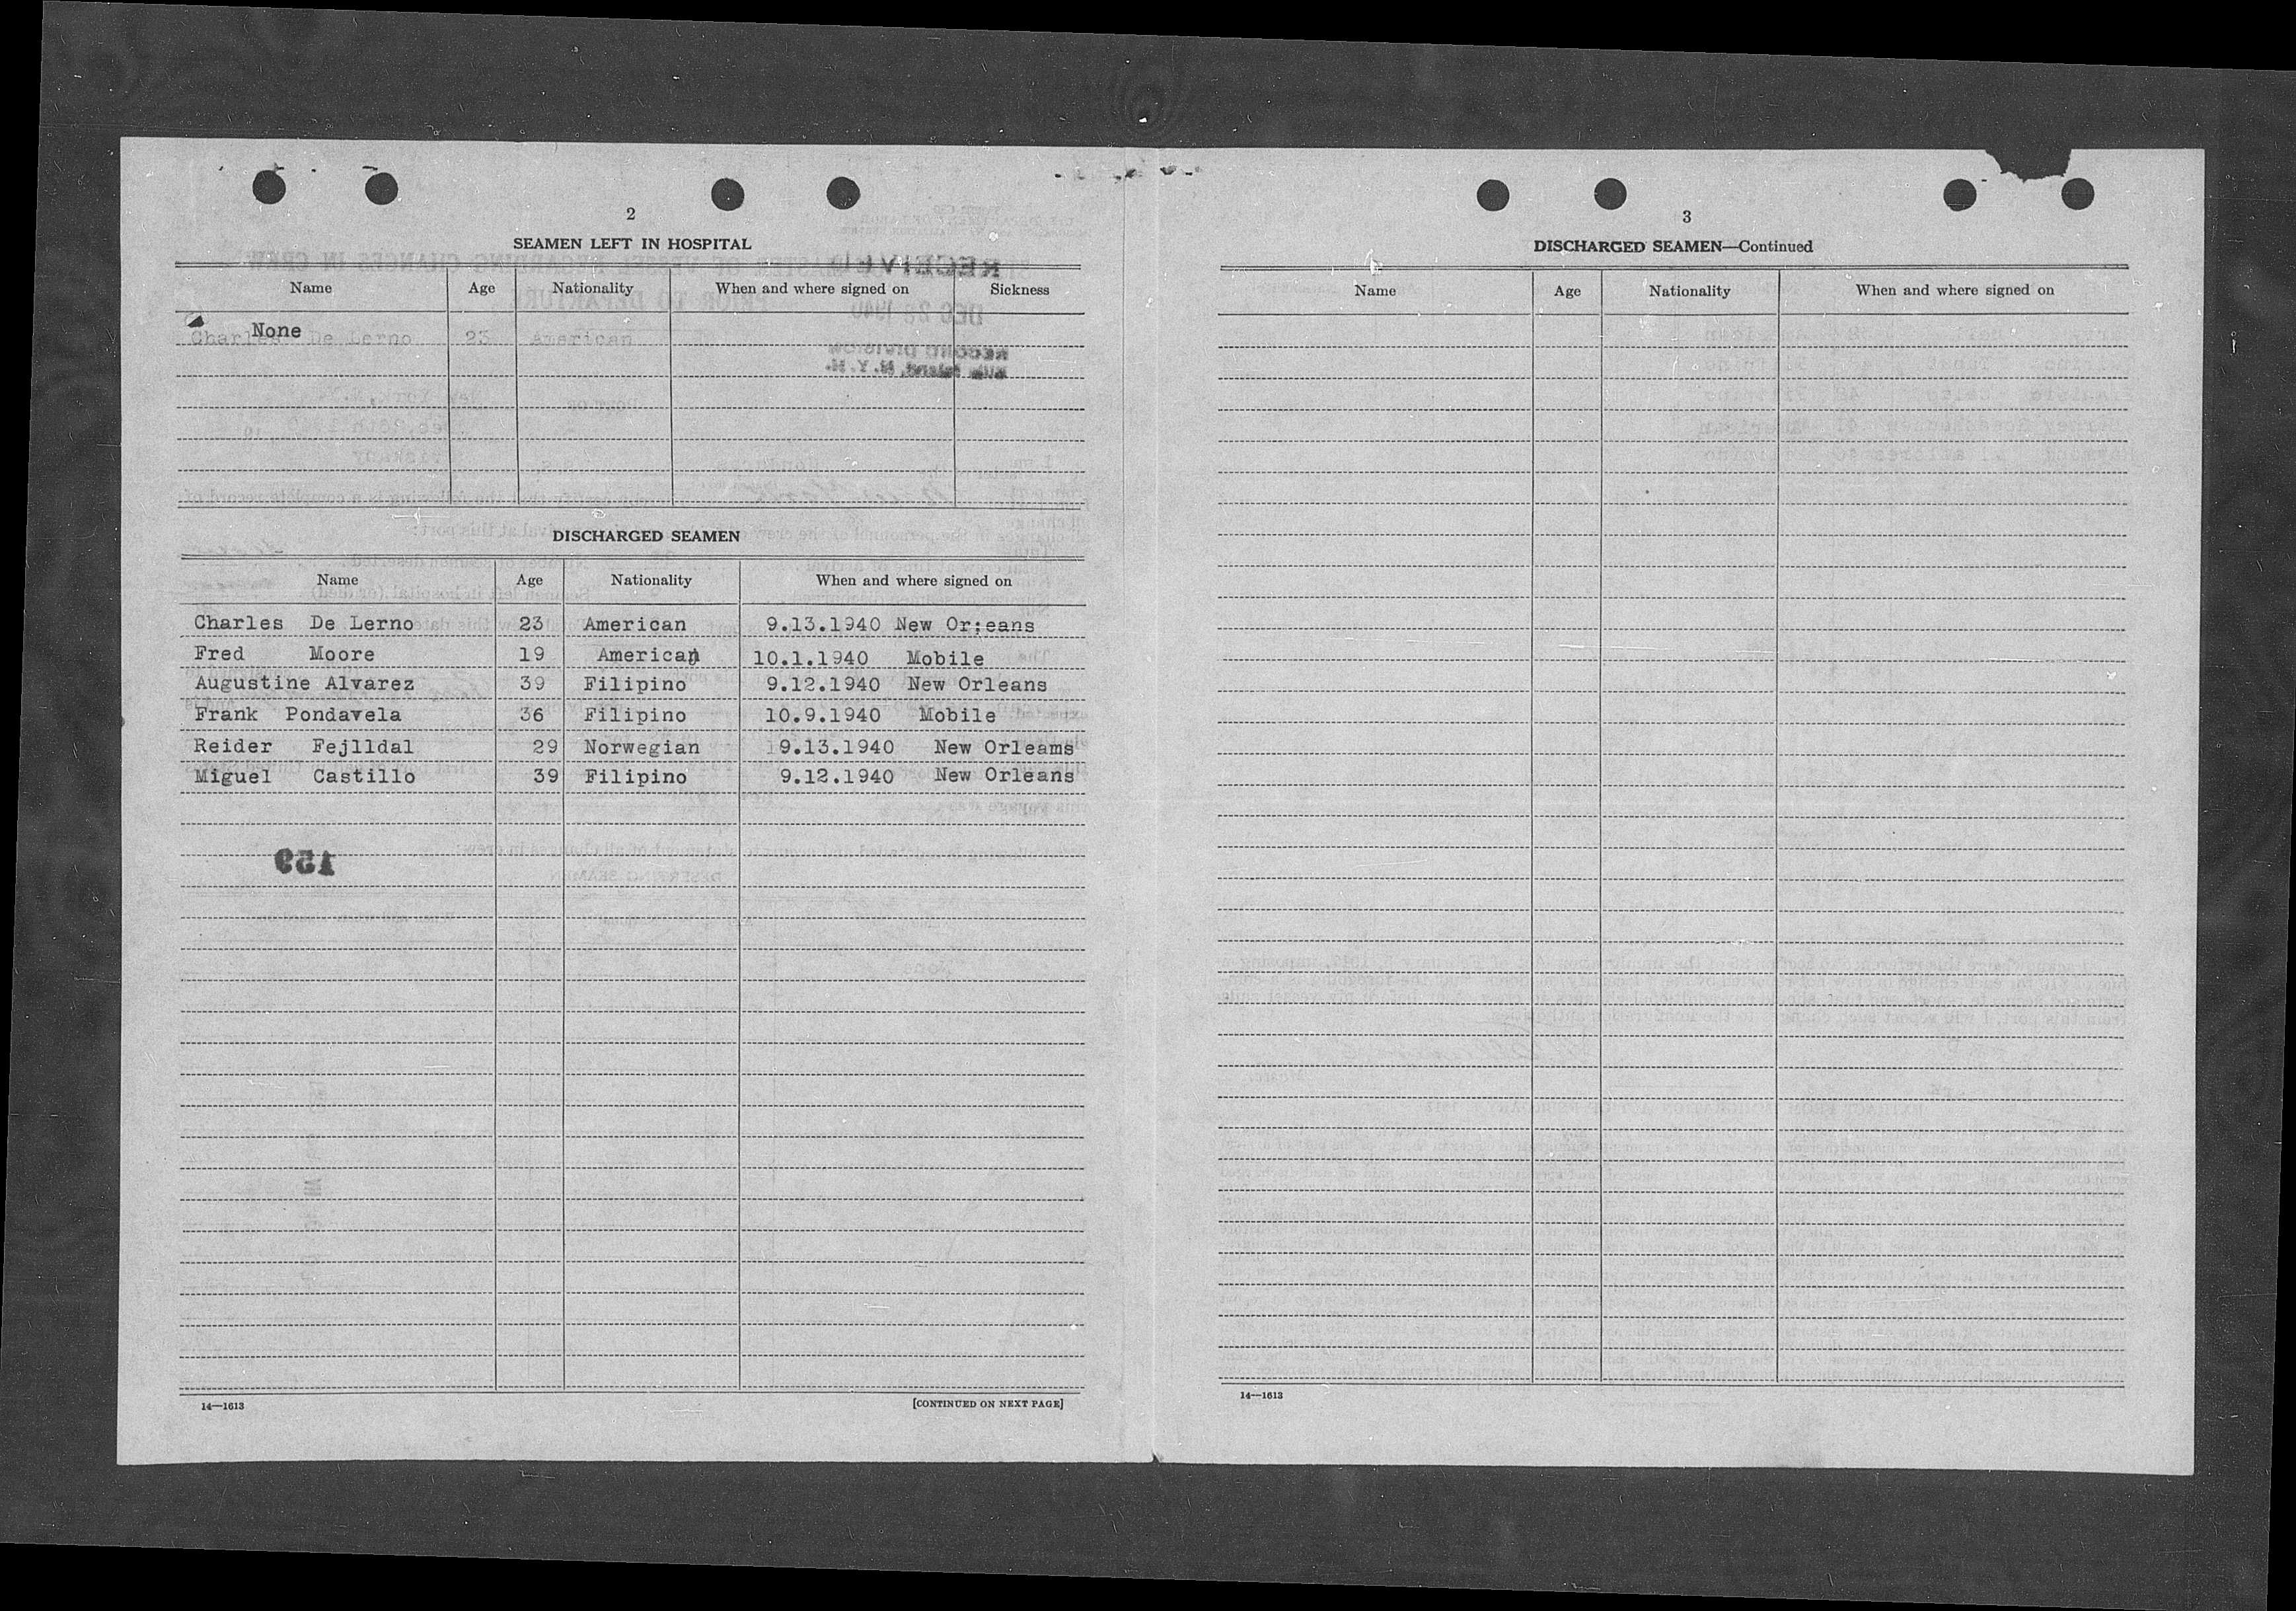 2
SEAMEN LEFT IN HOSPITAL
Name Age Nationality When and where signed on Sickness
None
Charles De Lerno 23 American
DISCHARGED SEAMEN
Name Age Nationality When and where signed on
Charles De Lerno 23 American 9.13.1940 New Or;eans
Fred Moore 19 American 10.1.1940 Mobile
Augustine Alvarez 39 Filipino 9.12.1940 New Orleans
Frank Pondavela 36 Filipino 10.9.1940 Mobile
Reider Fejlldal 29 Norwegian 9.13.1940 New Orleams
Miguel Castillo 39 Filipino 9.12.1940 New Orleans
159
14—1613 [CONTINUED ON NEXT PAGE]
3
DISCHARGED SEAMEN—Continued
Name Age Nationality When and where signed on
14—1613